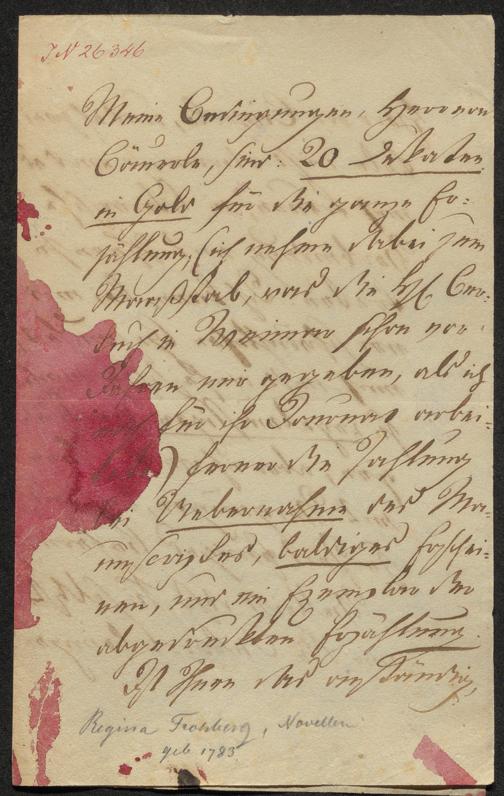 IN 26346
Meine Bedingungen, Herr von
sind: 20 Dukaten
in Gold für die ganze Er-
zählung; (ich nehme dabei zum
Maasstab, was die HE Ber-
tuch in Weimar schon vor
Jahren mir gegeben, als ich
für ihr Journal arbei-
tete) ferner die Zahlung
bei Uebernahme des Ma-
nuscriptes, baldiges Erschei-
nen, und ein Exemplar der
abgedruckten Erzählung.
Ist Ihnen das anständig,
Regina Frohberg, Novellen
geb 1783